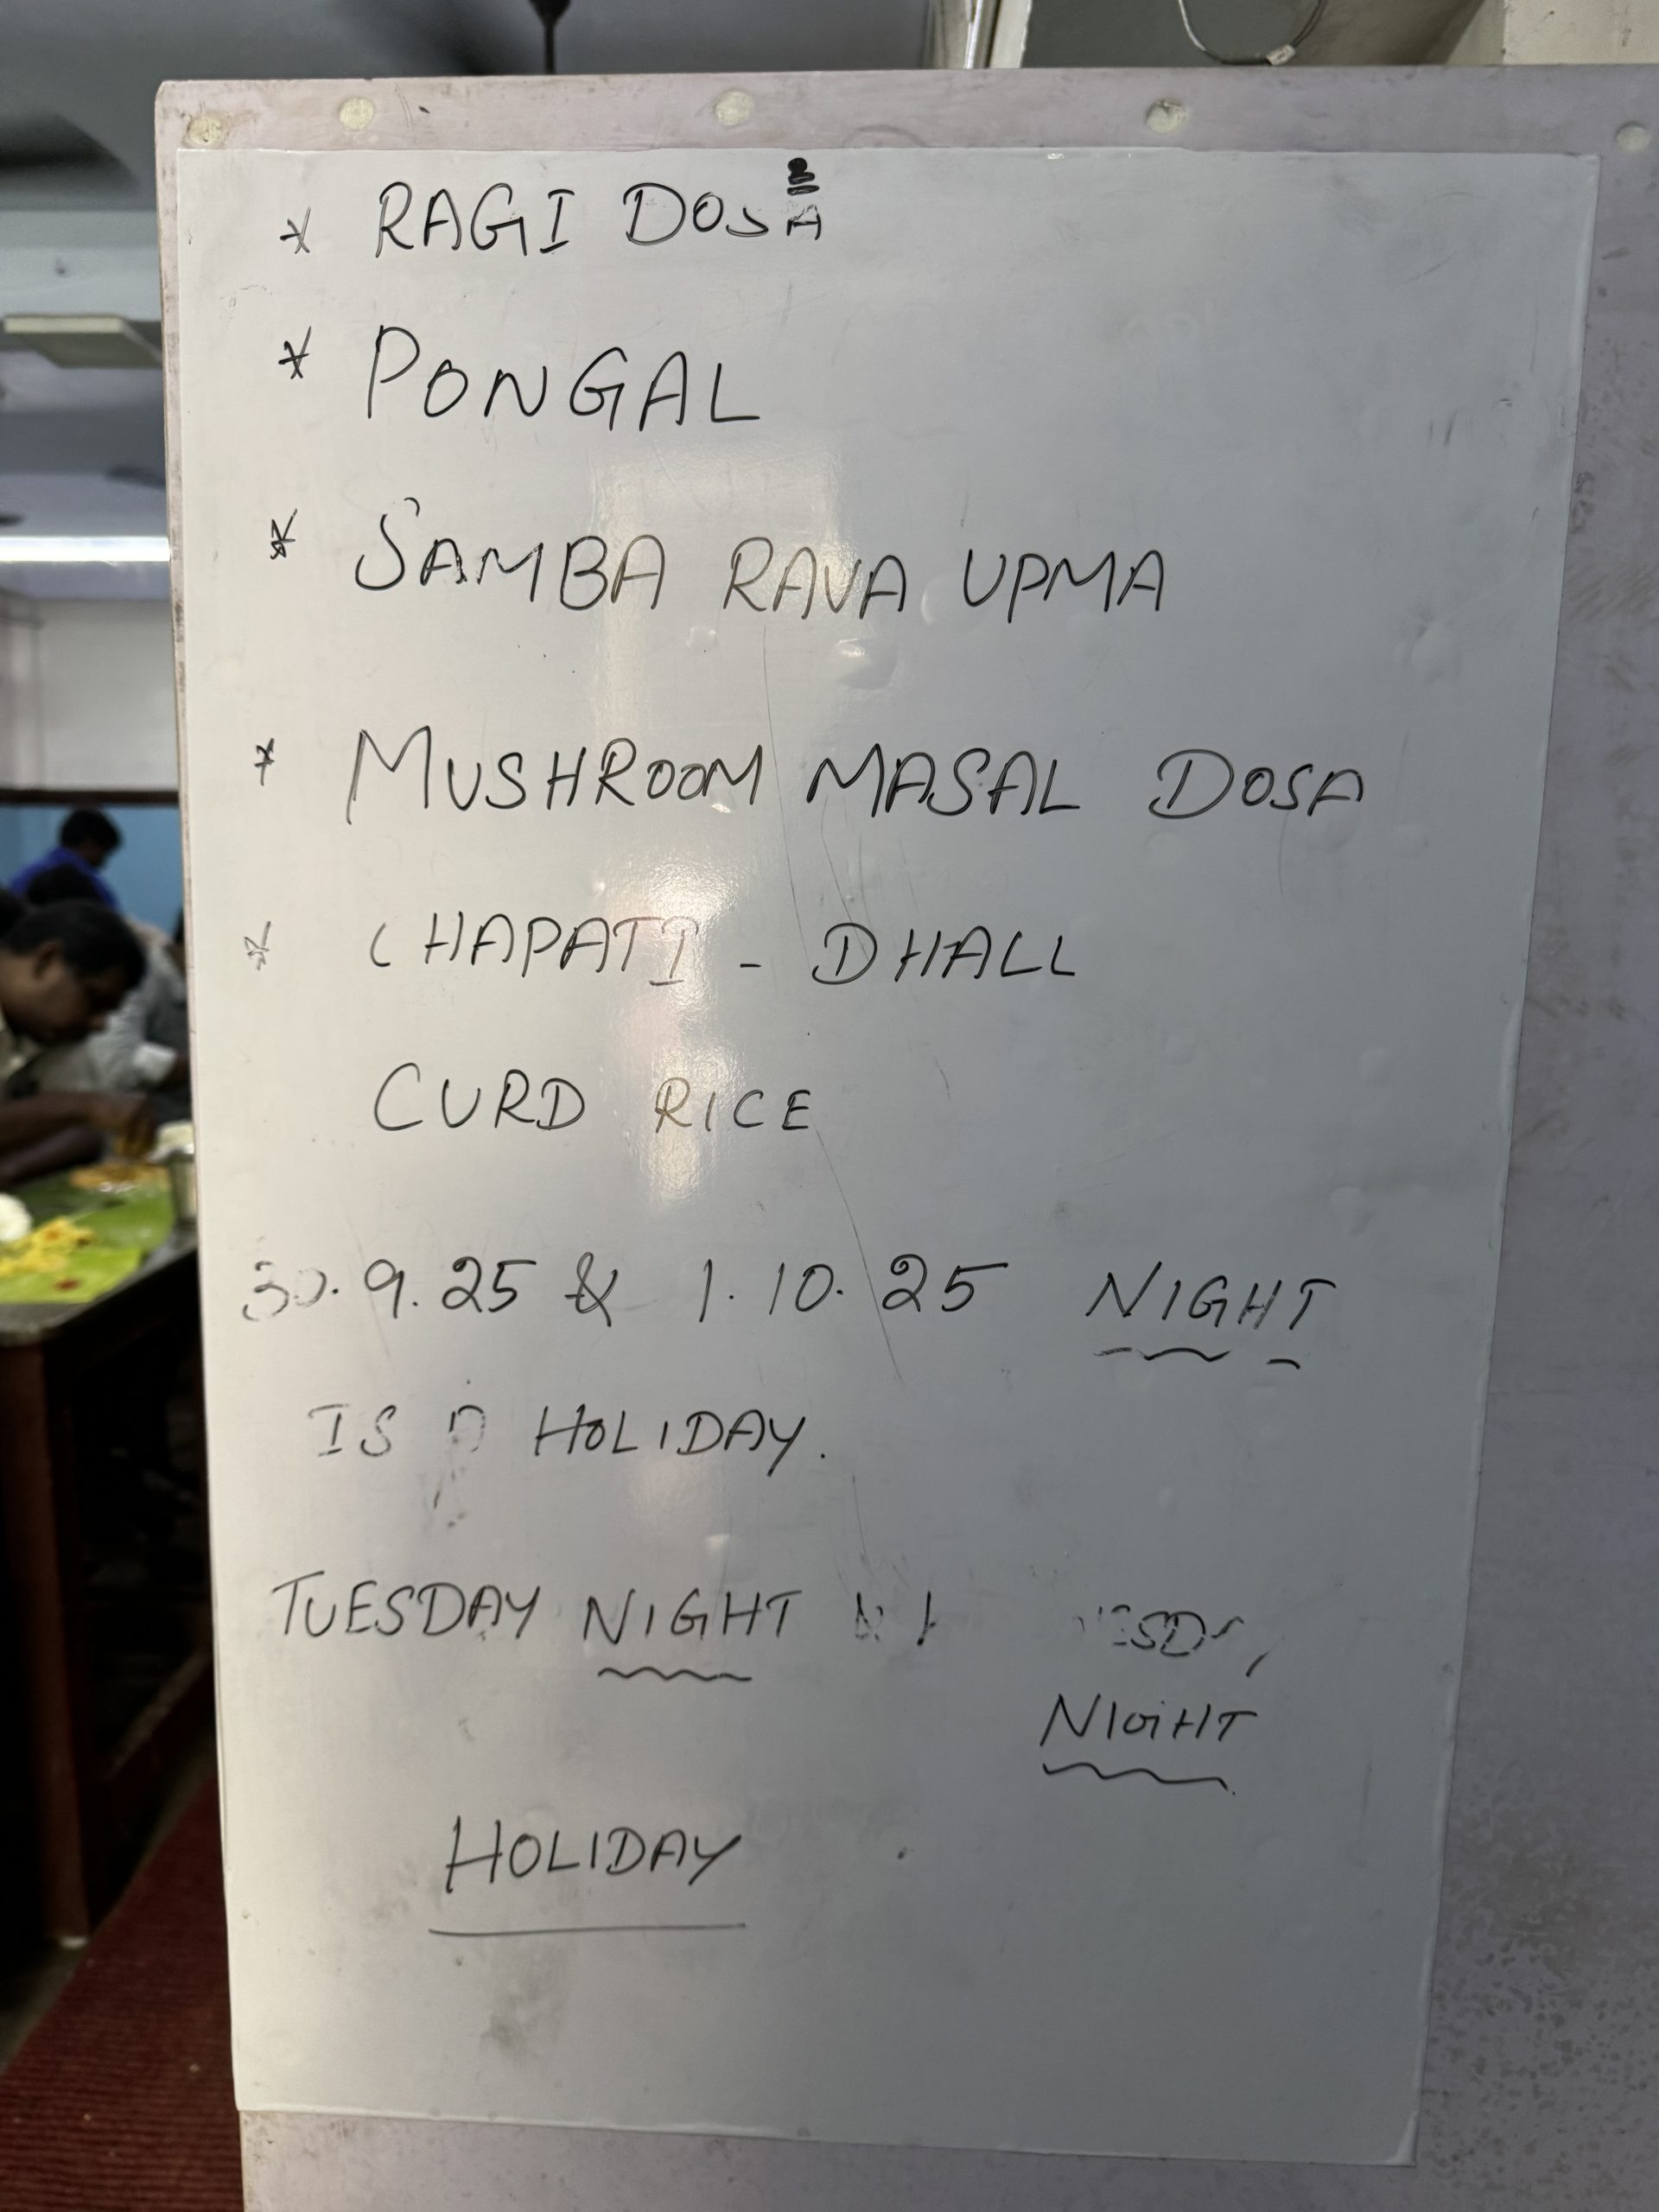 * RAGI DOSA
* PONGAL
* SAMBA RAVA UPMA
* MUSHROOM MASAL DOSA
* CHAPATI - DHALL
CURD RICE
30.9.25 & 1.10.25 NIGHT
IS A HOLIDAY.
TUESDAY NIGHT
NIGHT
HOLIDAY